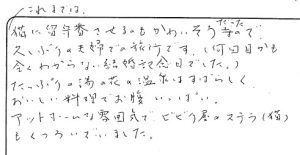 これまでは、
猫に留守番させるのもかわいそうだったので
久しぶりの夫婦での旅行です。(何回目かも
全くわからない結婚記念日でした。)
たっぷりの湯の花の温泉はすばらしく
おいしい料理でお腹いっぱい。
アットホームな雰囲気で、ビビリ屋のステラ(猫)
もくつろいでいました。